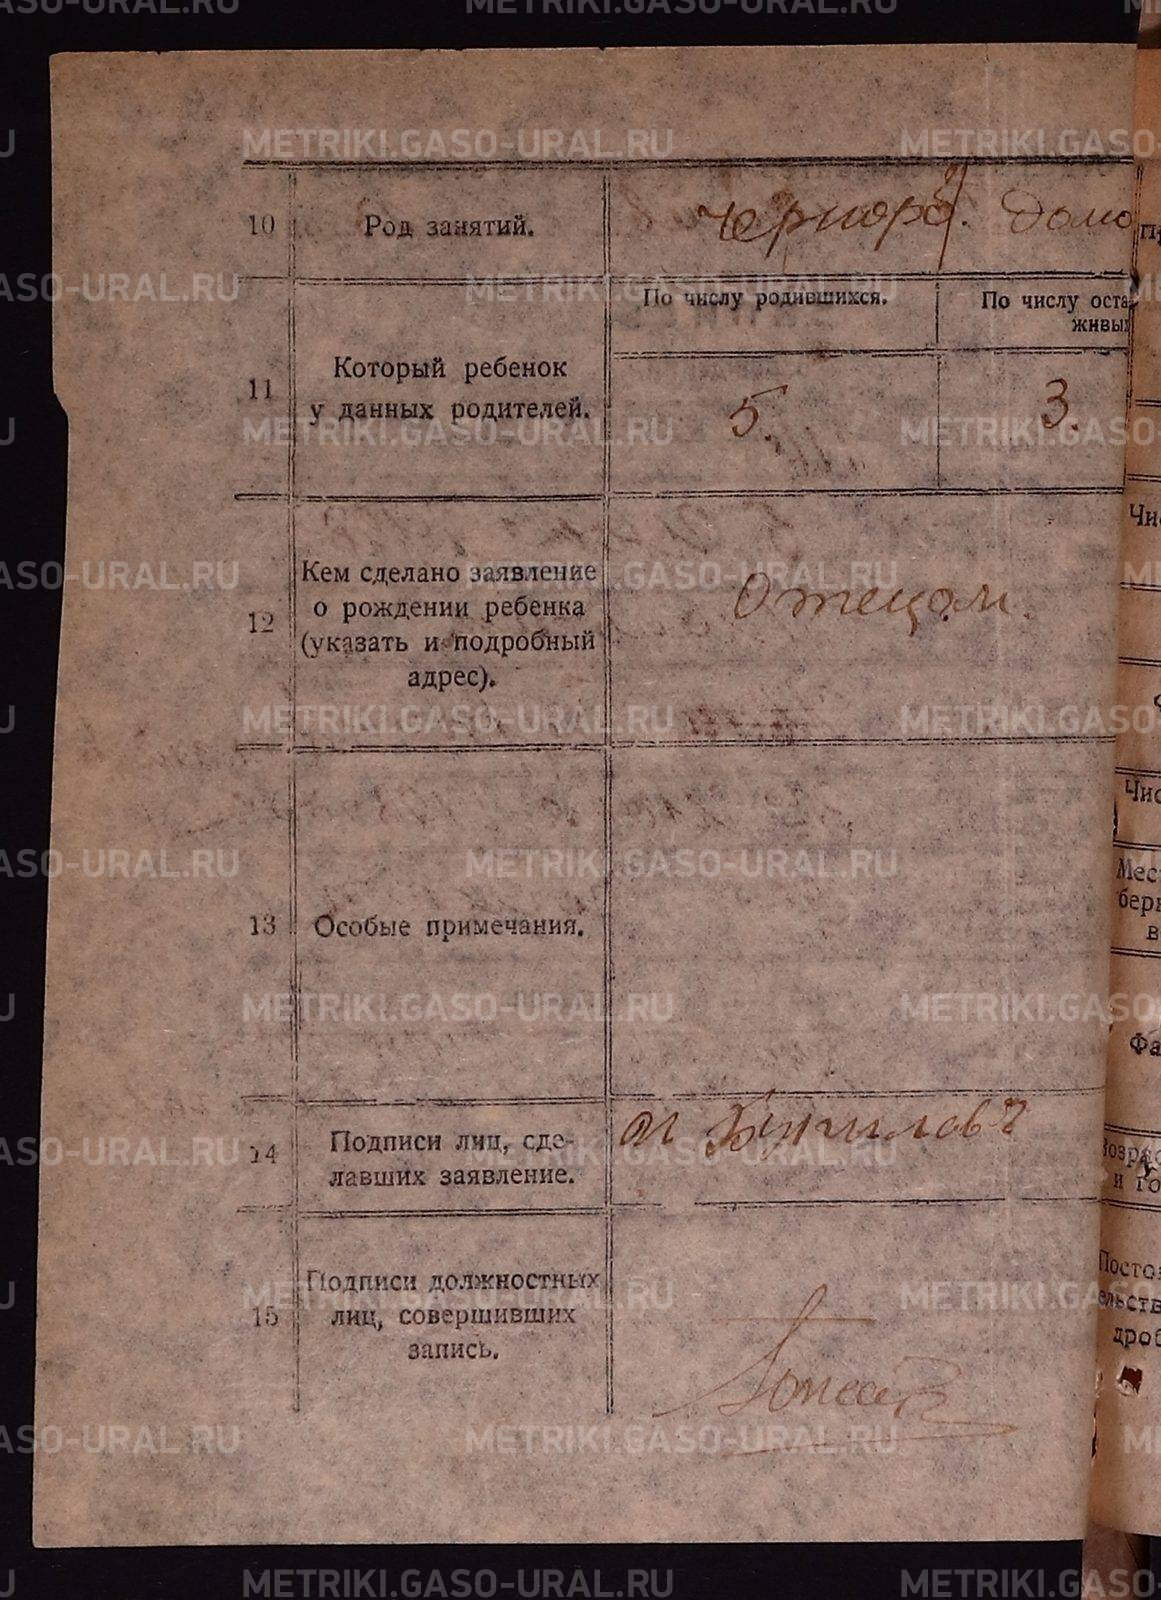 METRIKI.GASO-URAL.RU
10 Род занятий. Чернораб. Домо
11 Который ребенок
у данных родителей.
По числу родившихся.
По числу оста
живы
5. 3.
12 Кем сделано заявление
о рождении ребенка
(указать и подробный
адрес).
Отецом.
13 Особые примечания.
14 Подписи лиц, сде-
лавших заявление.
15 Подписи должностных
лиц, совершивших
запись.
Чи
Чис
Мес
бери
в
Фа
Возрас
и го
Посто
ельств
дроб